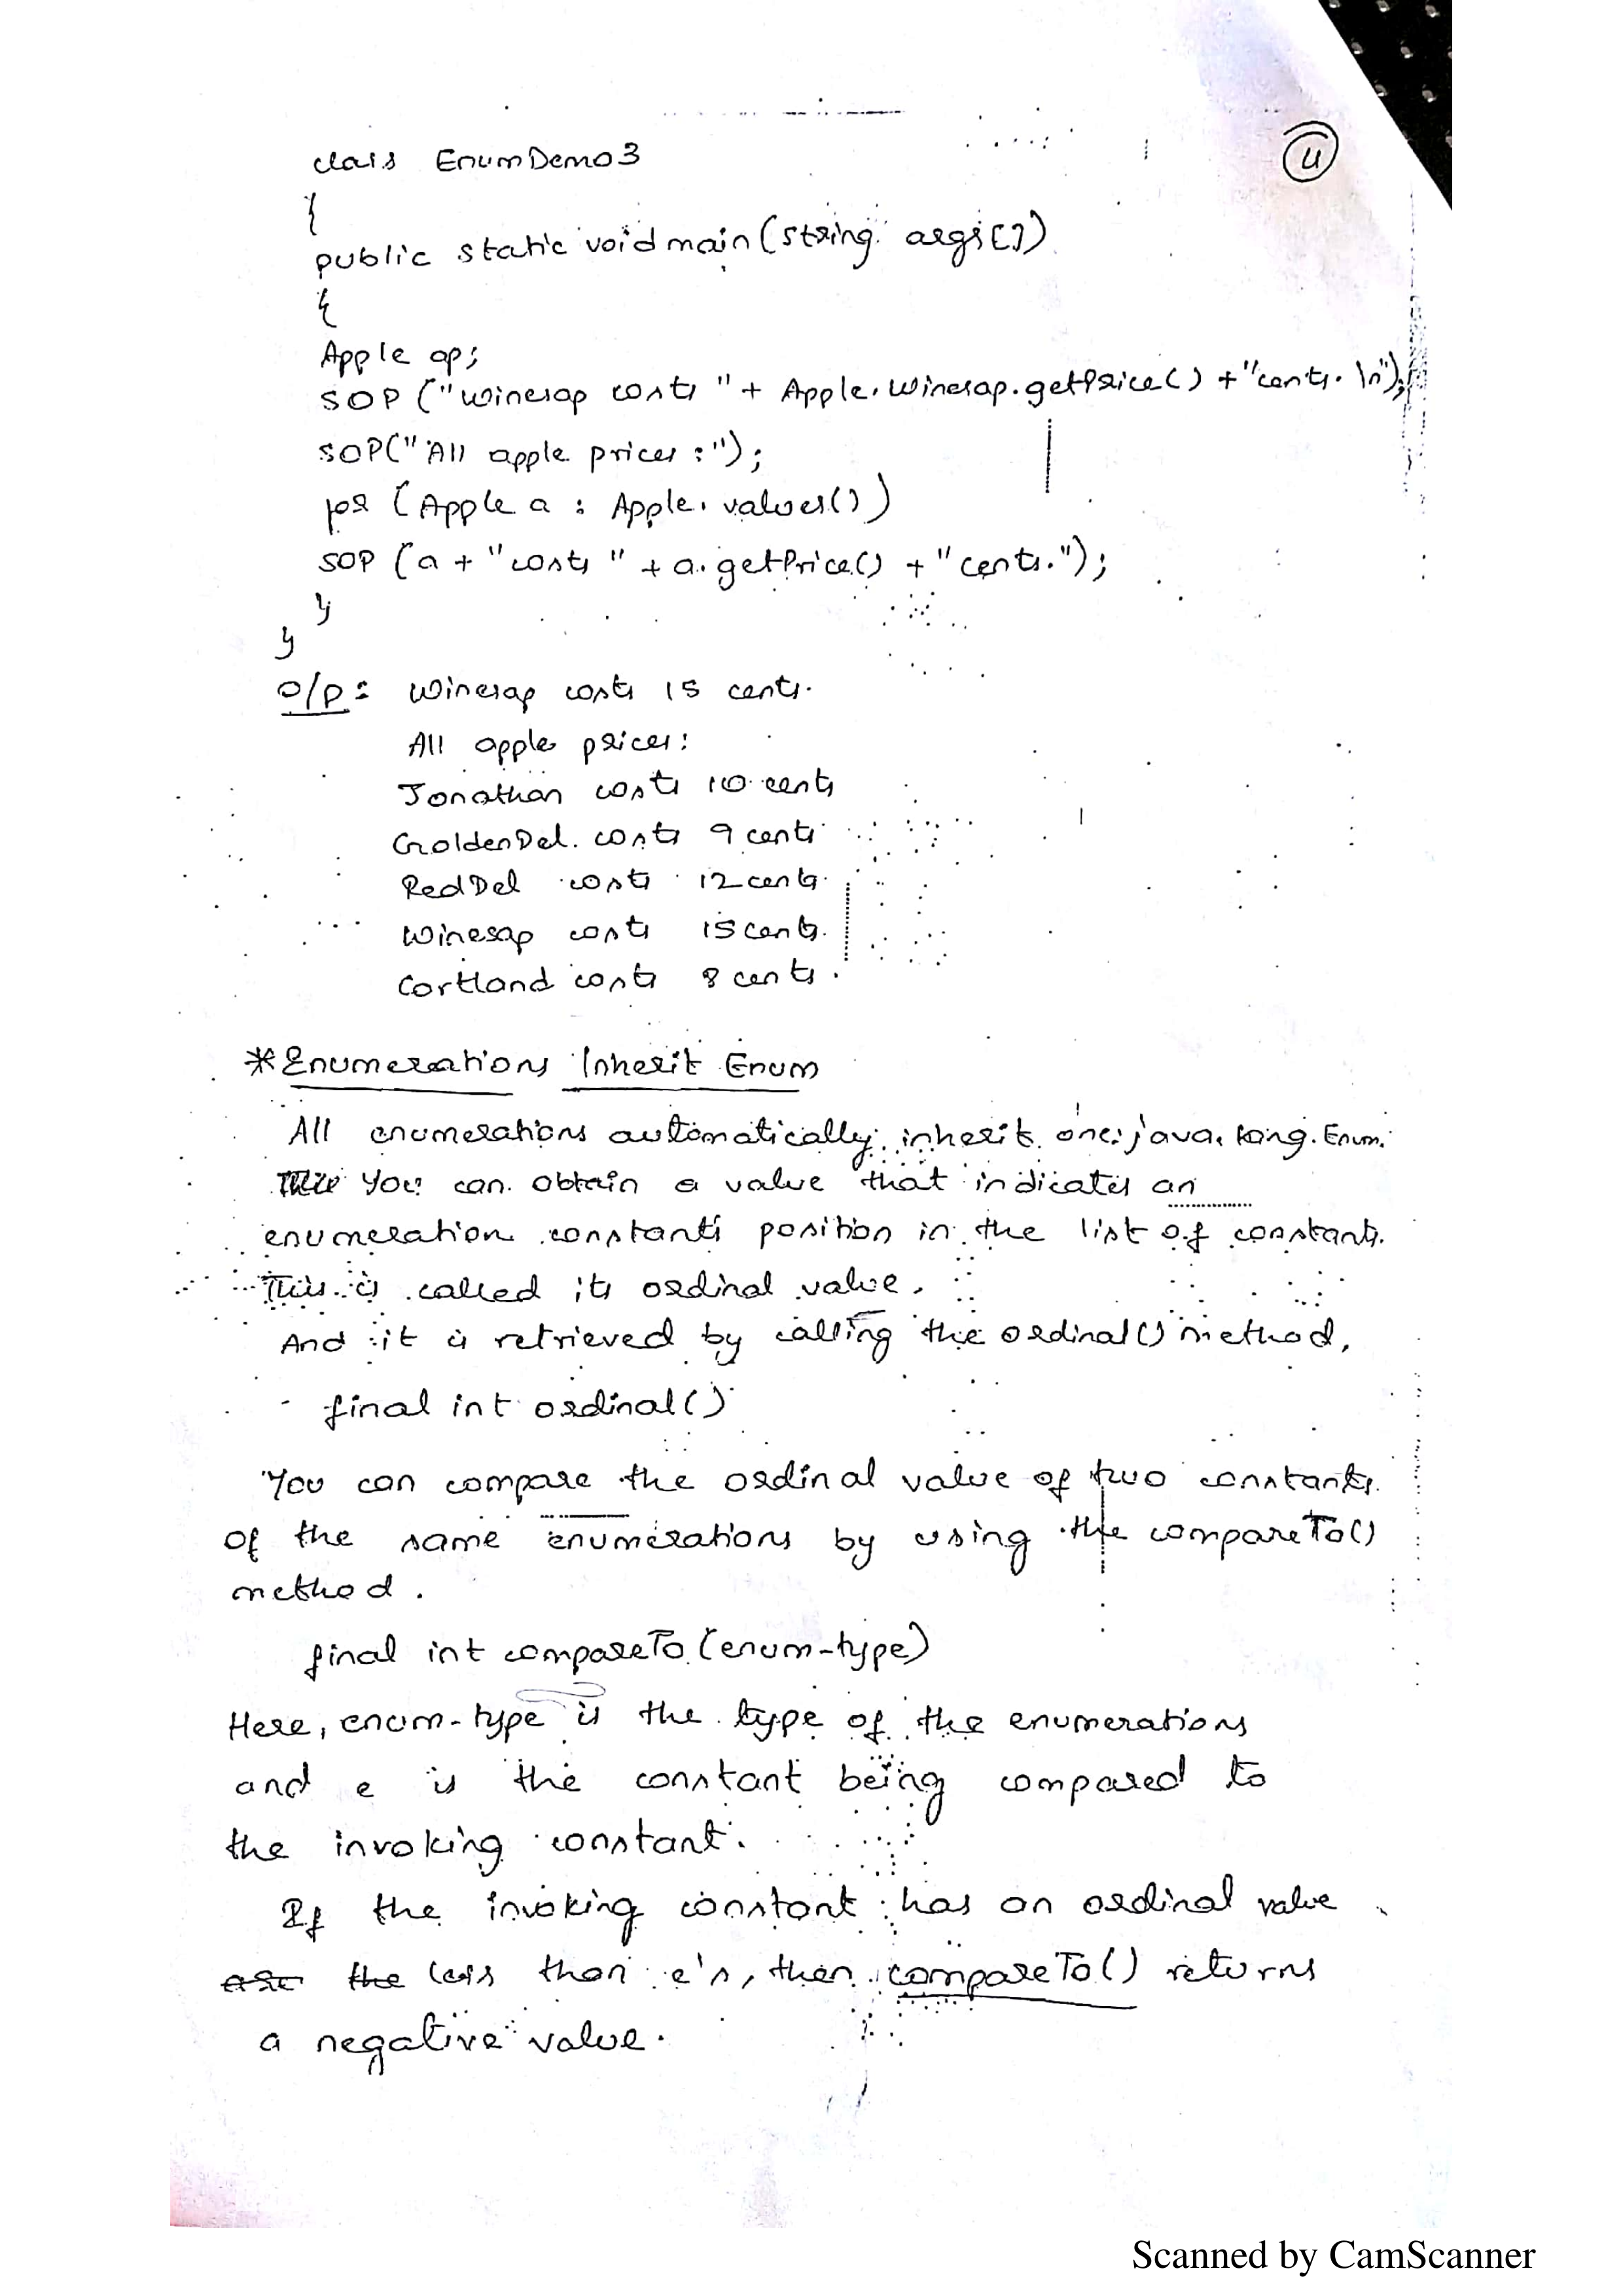 4
class EnumDemo3
{
public static void main(string args[])
{
Apple ap;
SOP ("Winesap costs " + Apple.Winesap.getPrice() + "cents. \n");
SOP("All apple prices :");
for (Apple a : Apple.values())
SOP (a + "costs " + a.getPrice() + "cents.");
}
}
o/p: Winesap costs 15 cents.
All apple prices:
Jonathan costs 10 cents
GoldenDel. costs 9 cents
RedDel costs 12 cents.
Winesap costs 15 cents.
Cortland costs 8 cents.
*Enumerations Inherit Enum
All enumerations automatically inherit one: java.lang.Enum.
You can obtain a value that indicates an
enumeration constant's position in the list of constants.
This is called its ordinal value.
And it is retrieved by calling the ordinal() method,
final int ordinal()
You can compare the ordinal value of two constants
of the same enumerations by using the compareTo()
method.
final int compareTo(enum-type)
Here, enum-type is the type of the enumerations
and e is the constant being compared to
the invoking constant.
If the invoking constant has an ordinal value
the less than e's, then compareTo() returns
a negative value.
Scanned by CamScanner